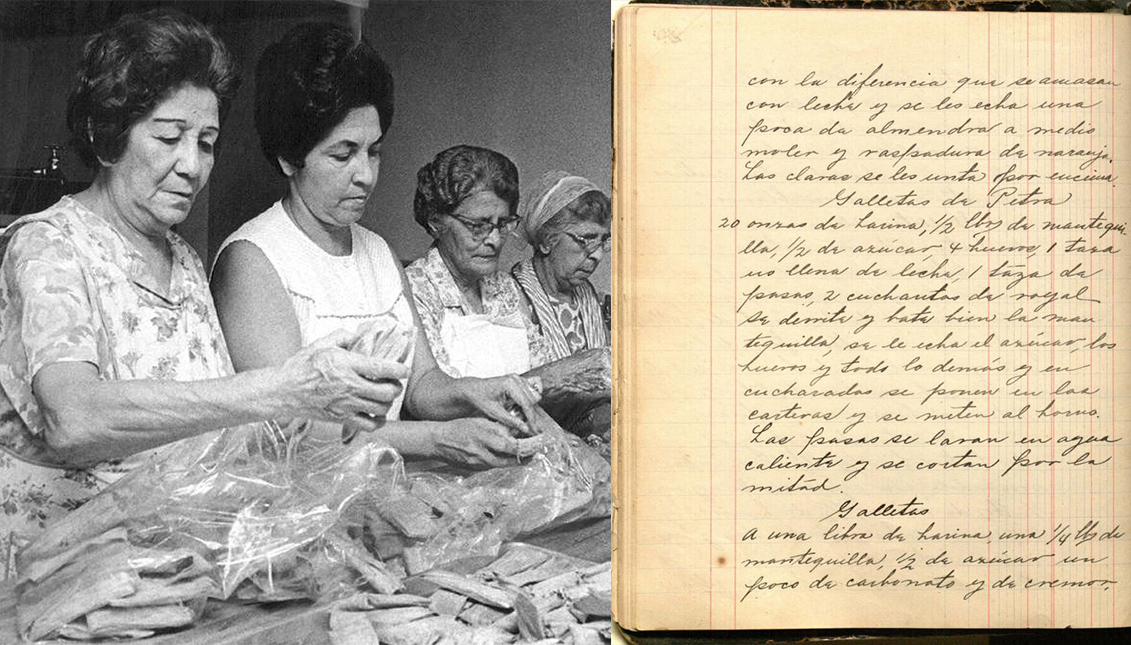 con la diferencia que se amasan
con leche y se les echa una
poca de almendra a medio
moler y raspadura de naranja.
Las claras se les unta por encima.
Galletas de Petra
20 onzas de harina, 1/2 lbs de mantequi-
lla, 1/2 de azúcar, 4 huevos, 1 taza
no llena de leche, 1 taza de
pasas, 2 cucharitas de royal
se derrite y bate bien la man
tequilla, se le echa el azúcar, los
huevos y todo lo demás y en
cucharadas se ponen en las
carteras y se meten al horno.
Las pasas se lavan en agua
caliente y se cortan por la
mitád.
Galletas
A una libra de harina una 1/4 lb de
mantequilla, 1/2 de azúcar un
poco de carbonato y de cremor,